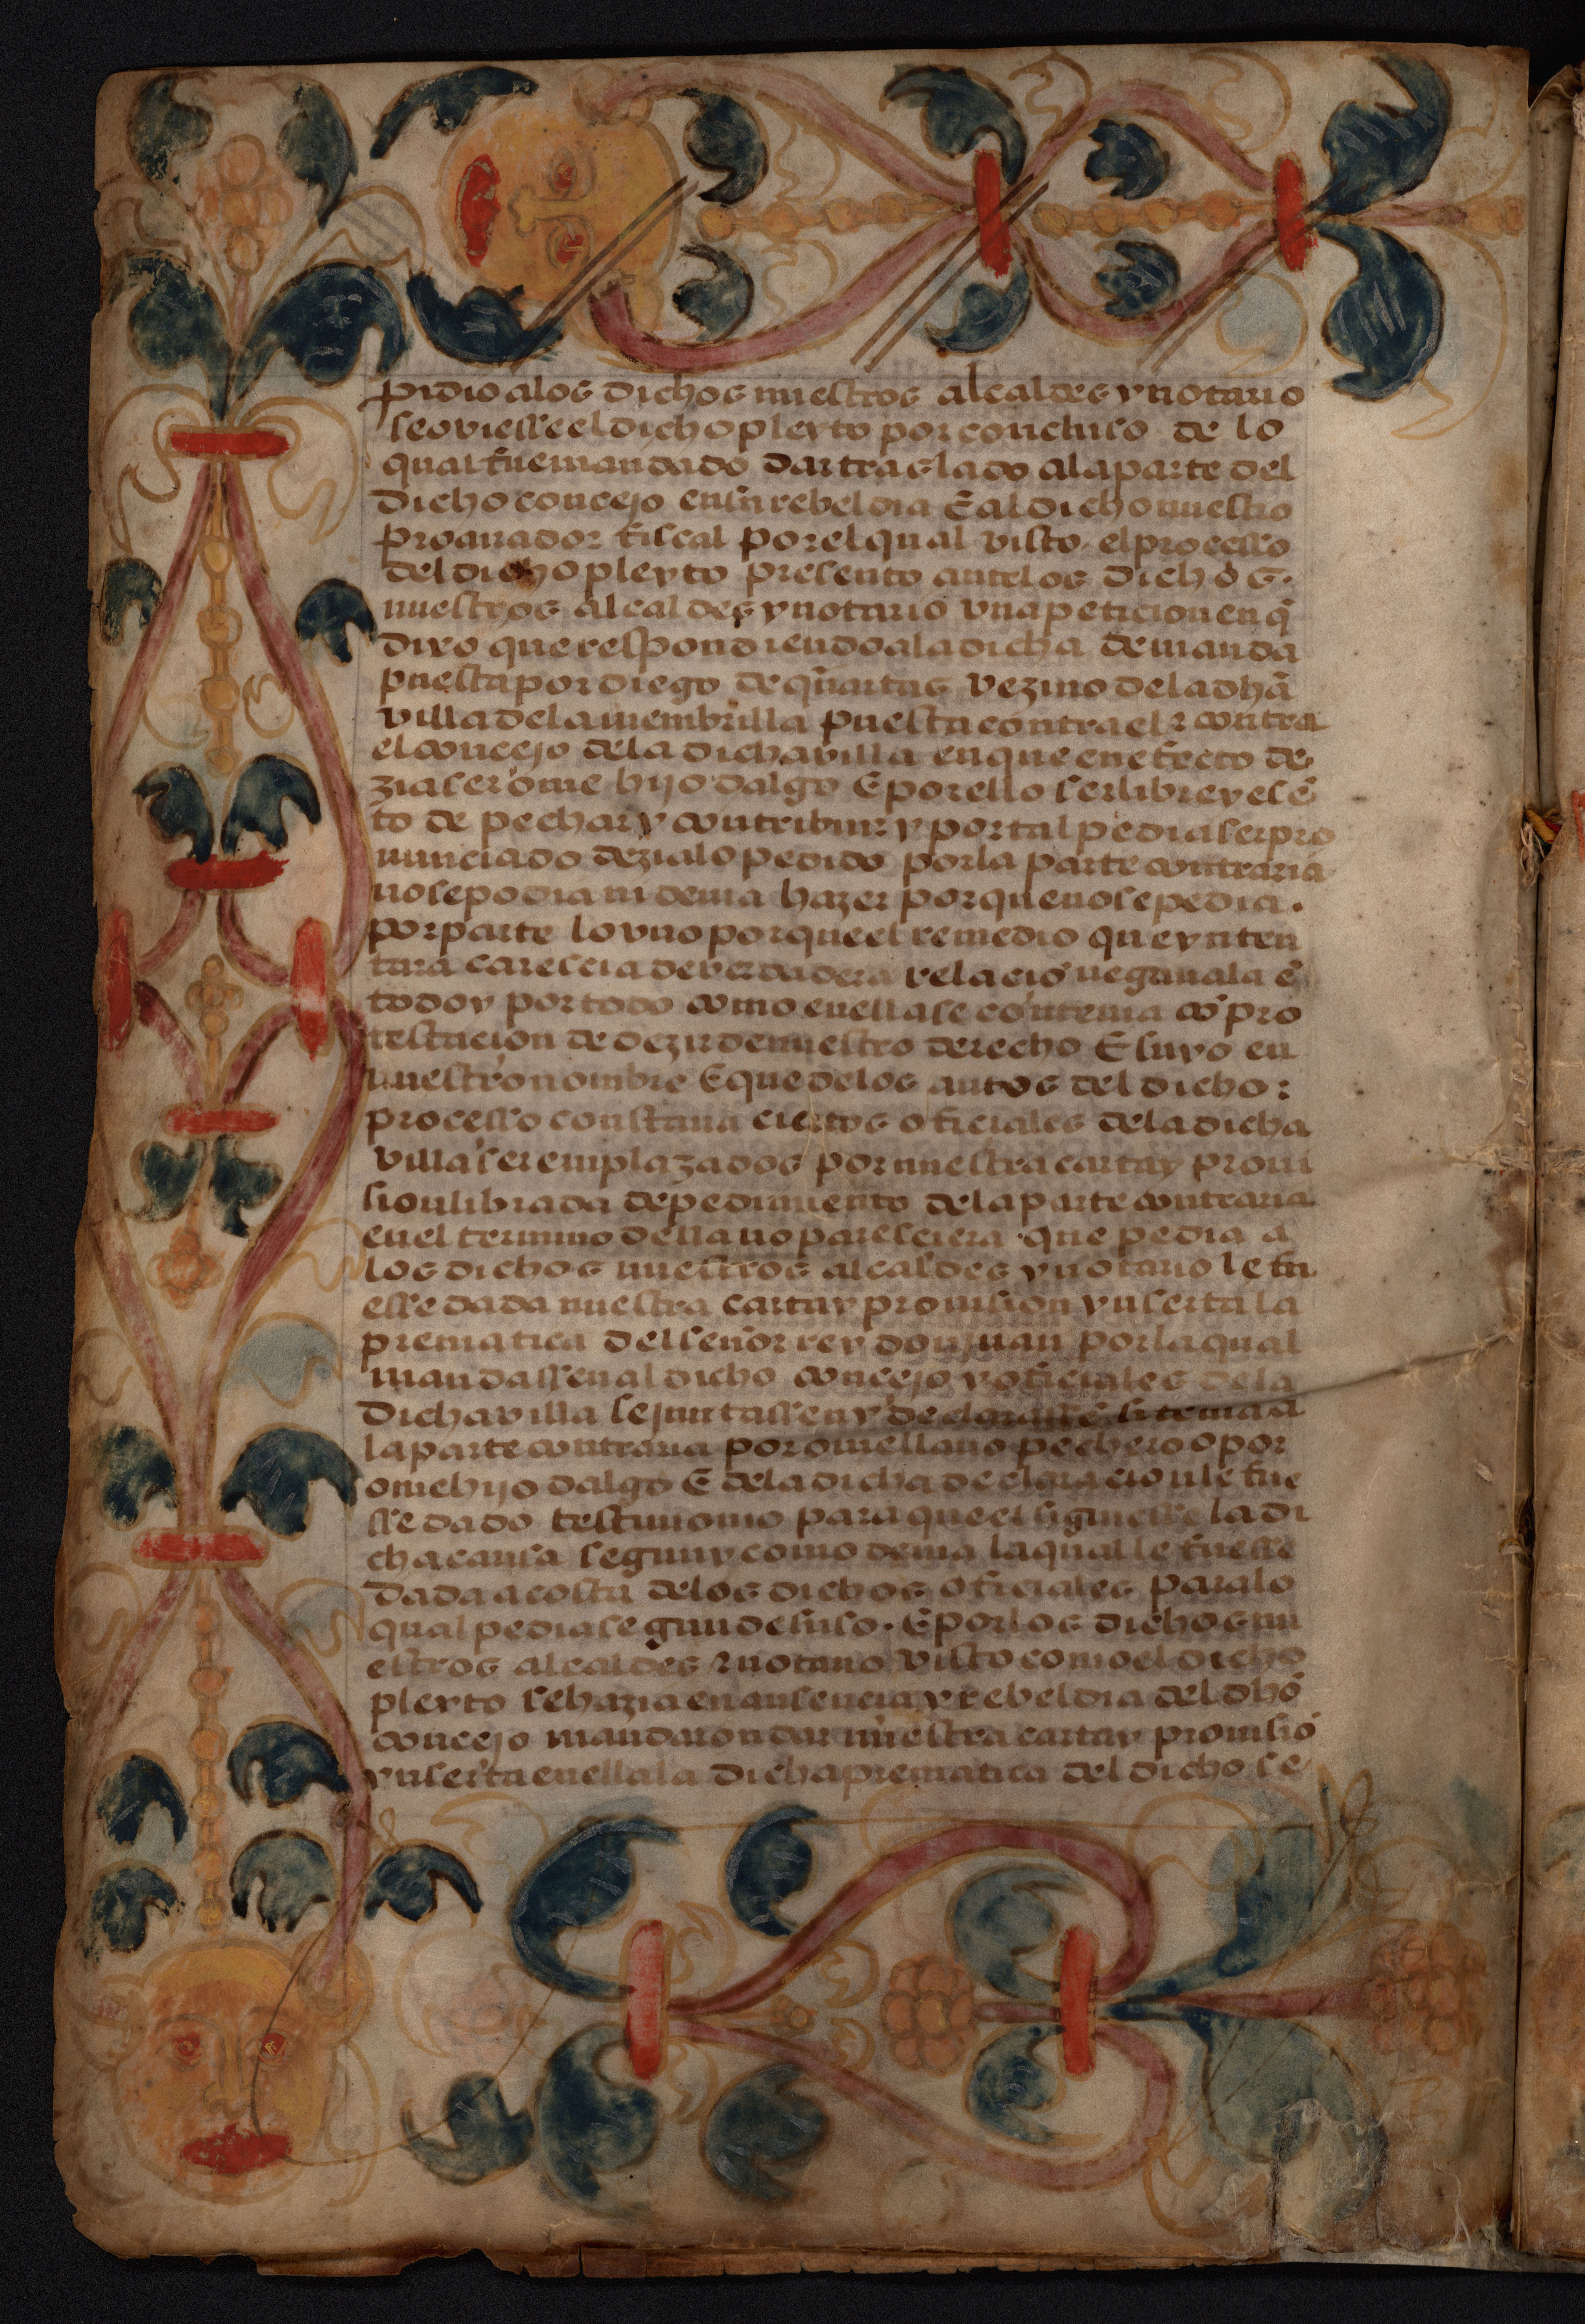 pidio a los dichos nuestros alcaldes y notario
se oviesse el dicho pleyto por concluso de lo
qual fue mandado dar traslado a la parte del
dicho concejo en su rebeldia E al dicho nuestro
procurador fiscal por el qual visto el processo
del dicho pleyto presento ante los dichos.
nuestros alcaldes y notario vna peticion en q̃
dixo que respondiendo a la dicha demanda
puesta por diego de q̃artas vezino de la dhã
villa de la membrilla puesta contra el z contra
el concejo de la dicha villa en que en efecto de
zia ser ome hijo dalgo E por ello ser libre y esẽ
to de pechar y contribuir y por tal pedia ser pro
nunciado dezia lo pedido por la parte contraria
no se podia ni devia hazer por que no se pedia.
por parte lo vno por que el remedio que ynten
tara carescia de verdadera relaciõ negavala ẽ
todo y por todo como en ella se contenia cõ pro
testacion de dezir de nuestro derecho E suyo en
nuestro nombre E que de los autos del dicho:
processo constava ciertos oficiales de la dicha
villa ser emplazados por nuestra carta y provi
sion librada de pedimiento de la parte contraria
en el termino della no paresciera que pedia a
los dichos nuestros alcaldes y notario le fu
esse dada nuestra carta y provision ynserta la
prematica del señor rey don juan por la qual
mandassen al dicho concejo y oficiales de la
dicha villa se juntassen y declarassẽ si tenia a
la parte contraria por ome llano pechero o por
ome hijo dalgo E de la dicha declaracion le fue
sse dado testimonio para que el siguiesse la di
cha causa segun y como devia la qual le fuesse
dada a costa de los dichos oficiales para lo
qual pedia segun de suso. E por los dichos nu
estros alcaldes z notario visto como el dicho
pleyto se hazia en ausencia y rebeldia del dhõ
concejo mandaron dar nuestra carta y provisiõ
ynserta en ella la dicha prematica del dicho se